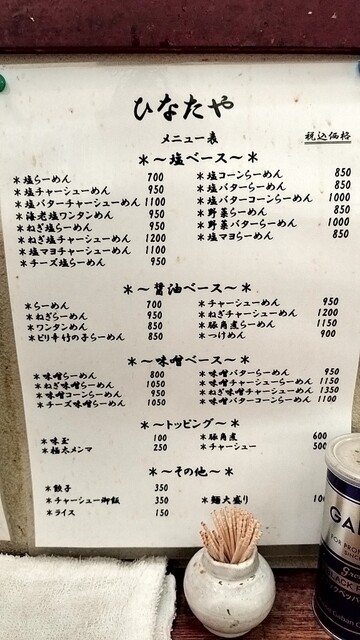 ひなたや
メニュー表
税込価格
＊～塩ベース～＊
＊塩らーめん 700
＊塩チャーシューめん 950
＊塩バターチャーシューめん 1100
＊海老塩ワンタンめん 950
＊ねぎ塩らーめん 950
＊ねぎ塩チャーシューめん 1200
＊塩マヨチャーシューめん 1100
＊チーズ塩らーめん 950
＊塩コーンらーめん 850
＊塩バターらーめん 850
＊塩バターコーンらーめん 1000
＊野菜らーめん 850
＊野菜バターらーめん 1000
＊塩マヨらーめん 850
＊～醤油ベース～＊
＊らーめん 700
＊ねぎらーめん 950
＊ワンタンめん 850
＊ピリ辛付の子らーめん 850
＊チャーシューめん 950
＊ねぎチャーシューめん 1200
＊豚角煮らーめん 1150
＊つけめん 900
＊～味噌ベース～＊
＊味噌らーめん 800
＊ねぎ味噌らーめん 1050
＊味噌コーンらーめん 950
＊チーズ味噌らーめん 1050
＊味噌バターらーめん 950
＊味噌チャーシューらーめん 1150
＊ねぎ味噌チャーシューめん 1350
＊味噌バターコーンらーめん 1100
＊～トッピング～＊
＊味玉 100
＊極太メンマ 250
＊豚角煮 600
＊チャーシュー 500
＊～その他～＊
＊餃子 350
＊チャーシュー御飯 350
＊ライス 150
＊麺大盛り
GA
FOR PRO
BLACK P
ックペッパー